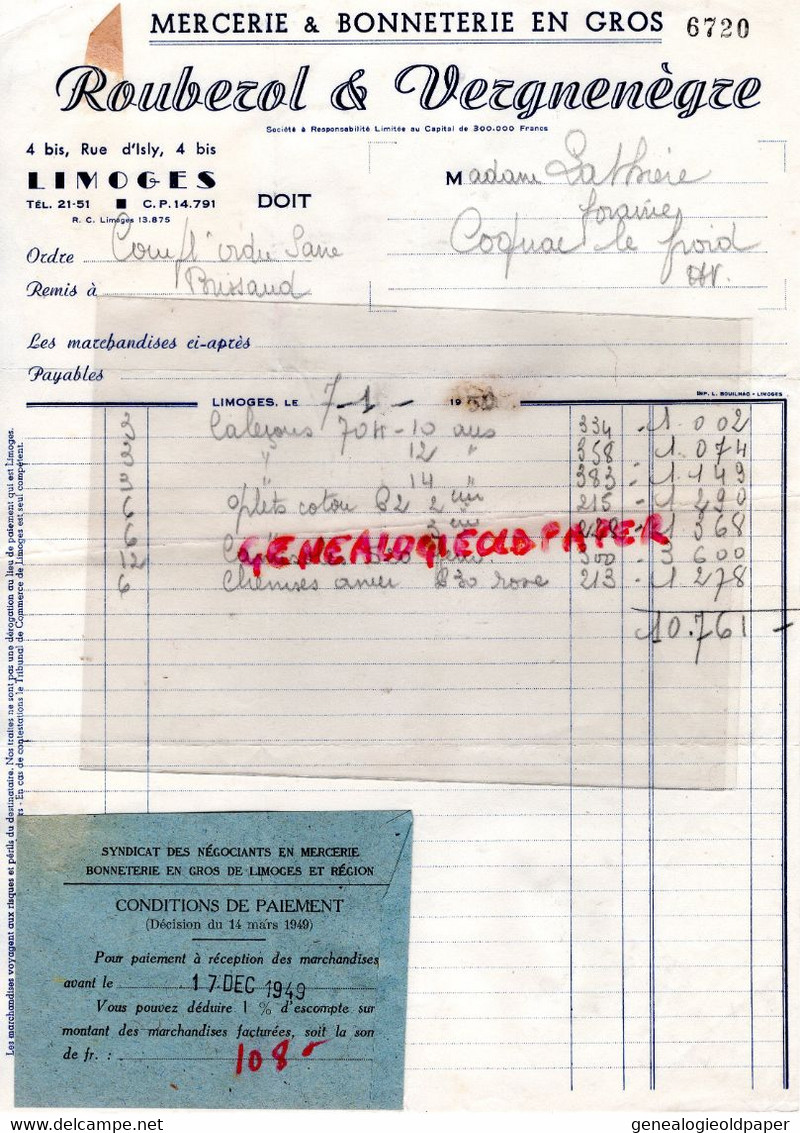 MERCERIE & BONNETERIE EN GROS 6720
Rouberol & Vergnenègre
Société à Responsabilité Limitée au Capital de 300.000 Francs
4 bis, Rue d'Isly, 4 bis
LIMOGES
TÉL. 21-51 ■ C.P. 14.791
R. C. Limoges 13.875
DOIT
Madame Lathière
foraine
Cognac le froid
HV.
Ordre
Remis à Brissaud
Les marchandises ci-après
Payables
IMP. L. BOUILHAC - LIMOGES
LIMOGES, LE 7-1- 19
3 Caleçons 70H-10 ans 334 - 1 002
3 " 12 " 358 - 1 074
3 " 14 " 383 - 1 149
6 coton 82 2 215 - 1 290
6 1 368
12 300 - 3 600
6 Chemises amer 830 rose 213 - 1 278
10.761 -
GENEALOGIEOLDPAPER
Les marchandises voyagent aux risques et périls du destinataire. Nos traites ne sont pas une dérogation au lieu de paiement qui est Limoges.
- En cas de contestations le Tribunal de Commerce de Limoges est seul compétent.
SYNDICAT DES NÉGOCIANTS EN MERCERIE
BONNETERIE EN GROS DE LIMOGES ET RÉGION
CONDITIONS DE PAIEMENT
(Décision du 14 mars 1949)
Pour paiement à réception des marchandises
avant le 17 DEC 1949
Vous pouvez déduire 1 % d'escompte sur
montant des marchandises facturées, soit la son
de fr. : 108
genealogieoldpaper